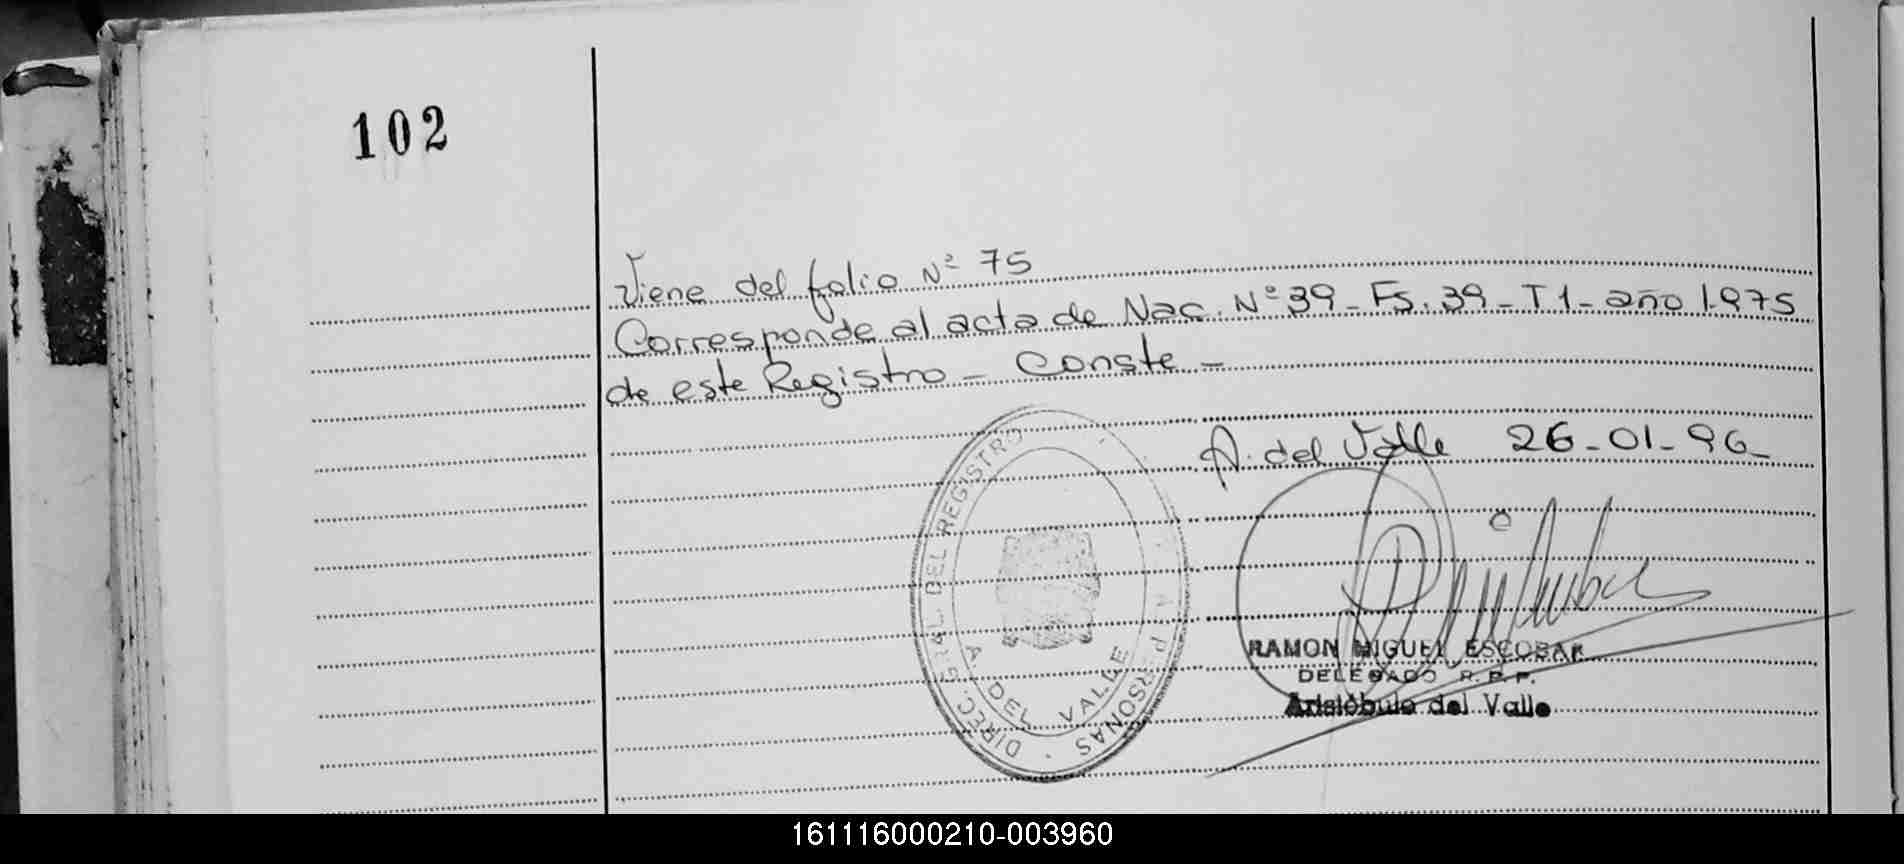 102
Viene del folio Nº 75
Corresponde al acta de Nac. Nº 39_Fs. 39_T1_año 1.975
de este Registro_ Conste_
A. del Valle 26_01_96_
DIREC. GRAL. DEL REGISTRO PERSONAS
A DEL VALLE
RAMON MIGUEL ESCOBAR
DELEGADO R. P. P.
Aristóbulo del Valle
161116000210-003960